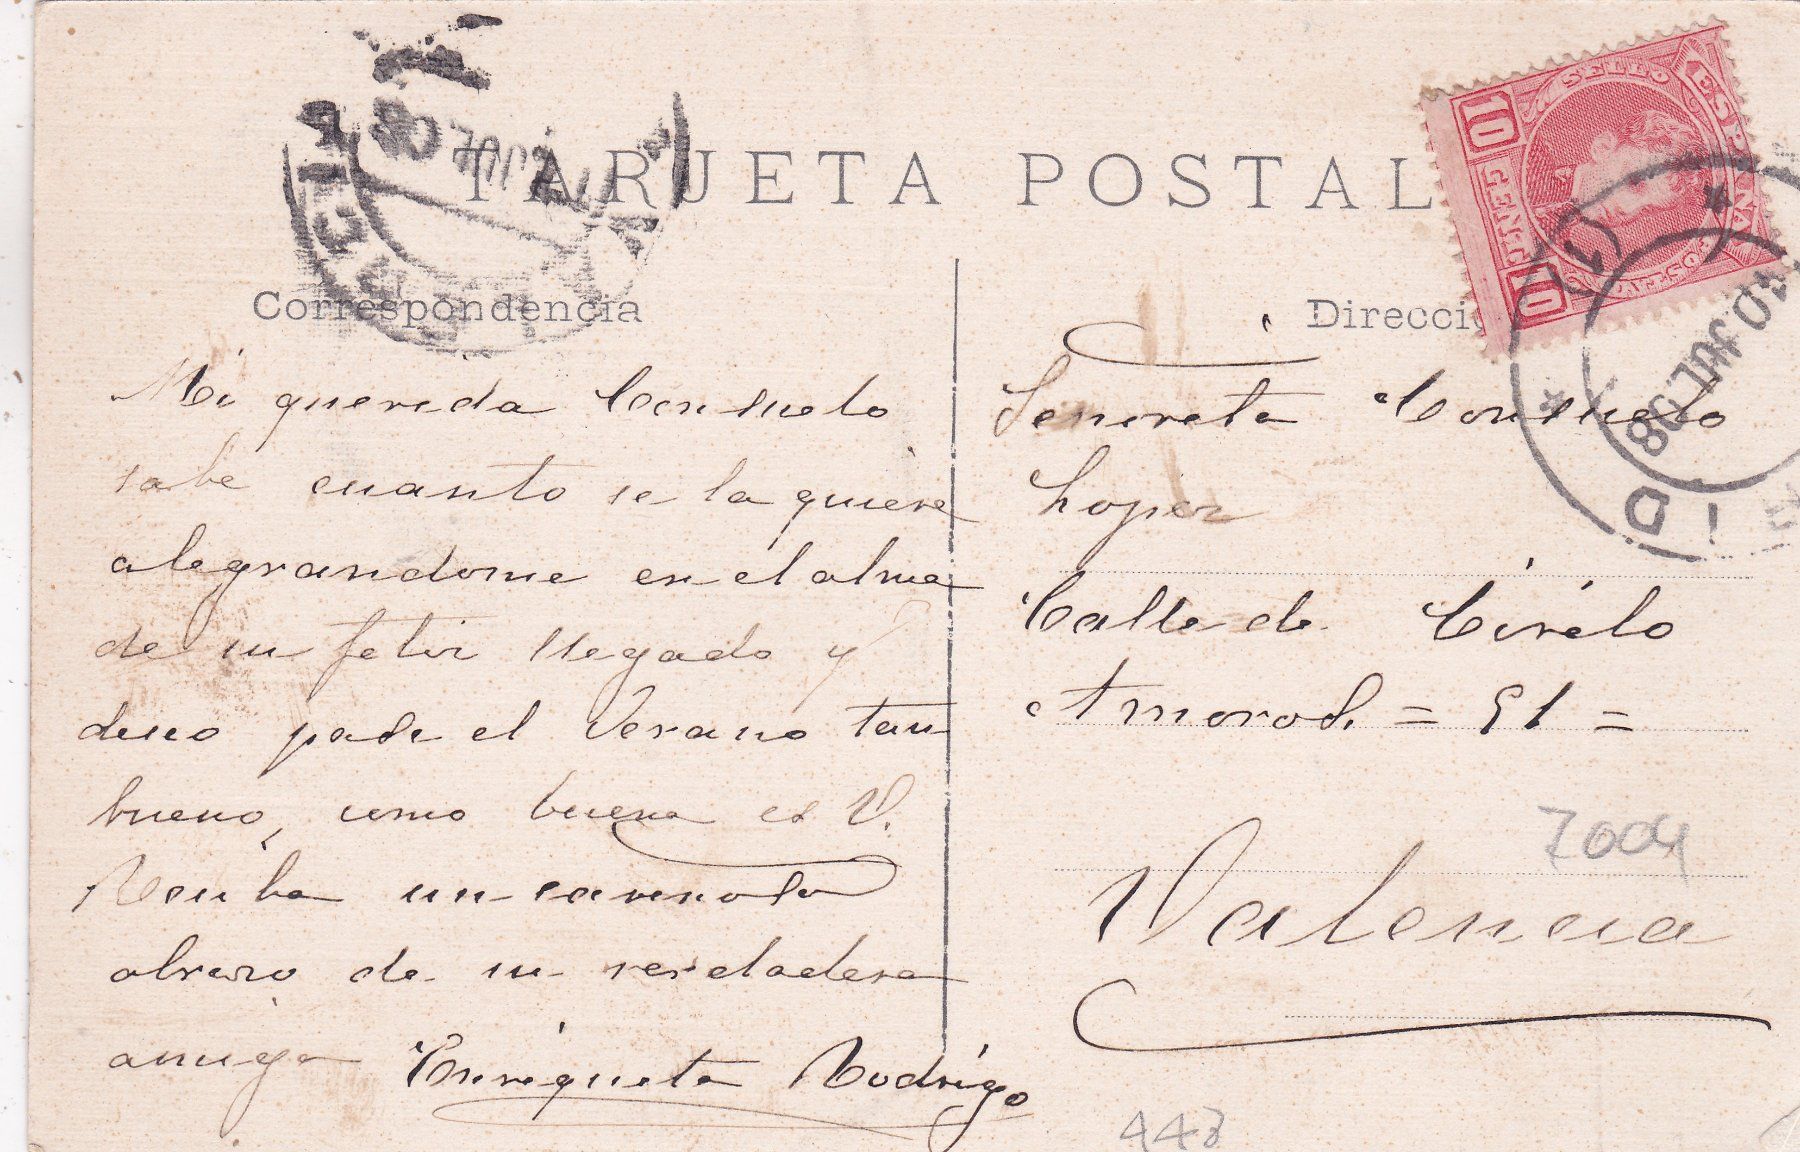 TARJETA POSTAL
Correspondencia
Mi querida Consuelo
sabe cuanto se la quiere
alegrandome en el alma
de su feliz llegada y
deseo pase el Verano tan
bueno, como buena es V.
Reciba un cariñoso
abrazo de su verdadera
amiga Enriqueta Rodrigo
Direcci
Señorita Consuelo
Lopez
Calle de Cirilo
Amoros = 51 =
Valencia
SELLO
ESPAÑA
10
CENT
10
10 JUL 08
7004
448